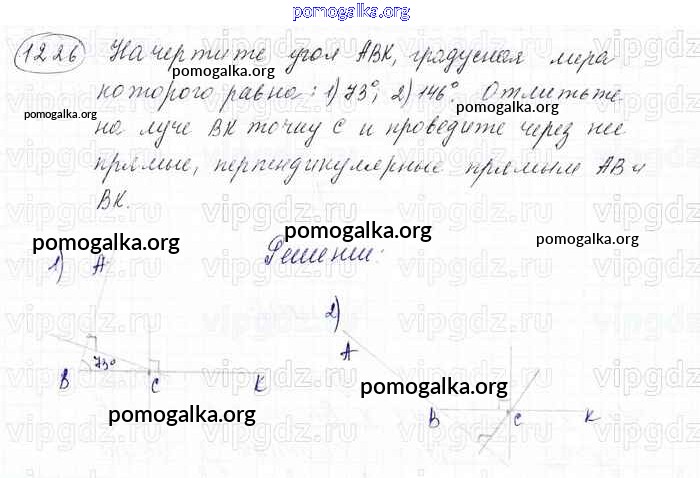 pomogalka.org
1226 Начертите угол ABK, градусная мера
pomogalka.org
которого равна: 1) 73°; 2) 146°. Отметьте
pomogalka.org pomogalka.org
на луче BK точку C и проведите через нее
прямые, перпендикулярные прямым AB и
BK.
pomogalka.org pomogalka.org pomogalka.org
Решение:
1) A
2)
A
73°
B C K
pomogalka.org
pomogalka.org
B C K
vipgdz.ru